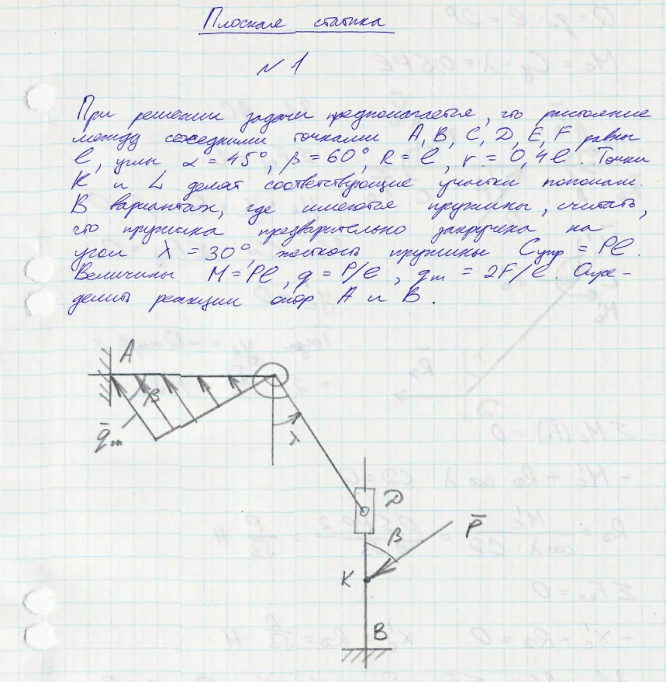 Плоская статика
№ 1
При решении задачи предполагается, что расстояние
между соседними точками A, B, C, D, E, F равны
l, углы α = 45°, β = 60°, R = l, r = 0,4l. Точки
K и L делят соответствующие участки пополам.
В вариантах, где имеются пружины, считать,
что пружина предварительно закручена на
угол λ = 30°, жесткость пружины Cпр = Pl.
Величины M = Pl, q = P/l, qm = 2F/l. Опре-
делить реакции опор A и B.
A
β
q̄m
λ
D
β
P̄
K
B